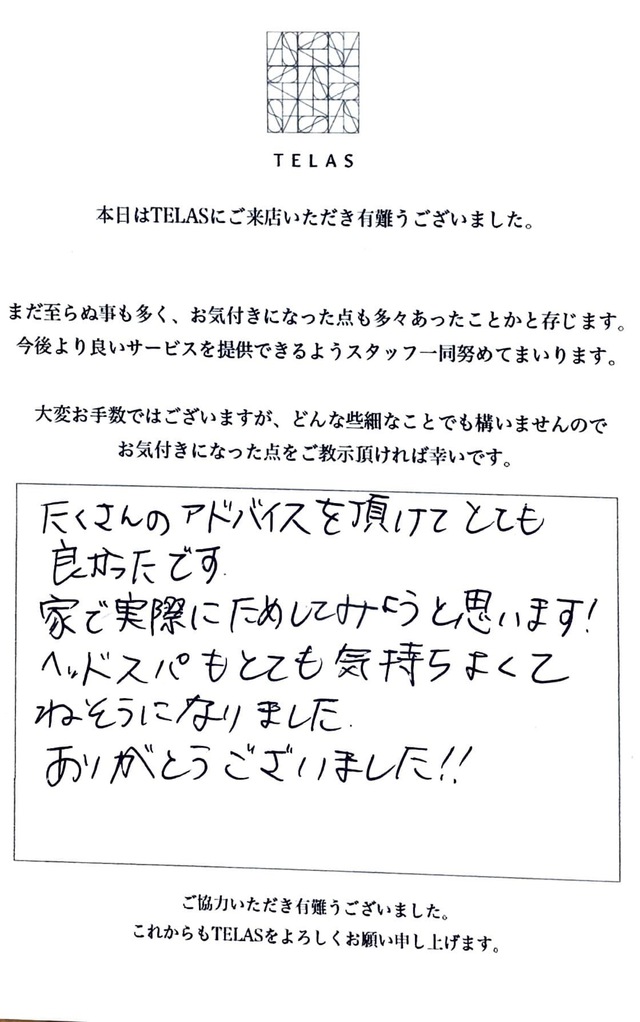 TELAS
本日はTELASにご来店いただき有難うございました。
まだ至らぬ事も多く、お気付きになった点も多々あったことかと存じます。
今後より良いサービスを提供できるようスタッフ一同努めてまいります。
大変お手数ではございますが、どんな些細なことでも構いませんので
お気付きになった点をご教示頂ければ幸いです。
たくさんのアドバイスを頂けてとても
良かったです.
家で実際にためしてみようと思います!
ヘッドスパもとても気持ちよくて
ねそうになりました.
ありがとうございました!!
ご協力いただき有難うございました。
これからもTELASをよろしくお願い申し上げます。